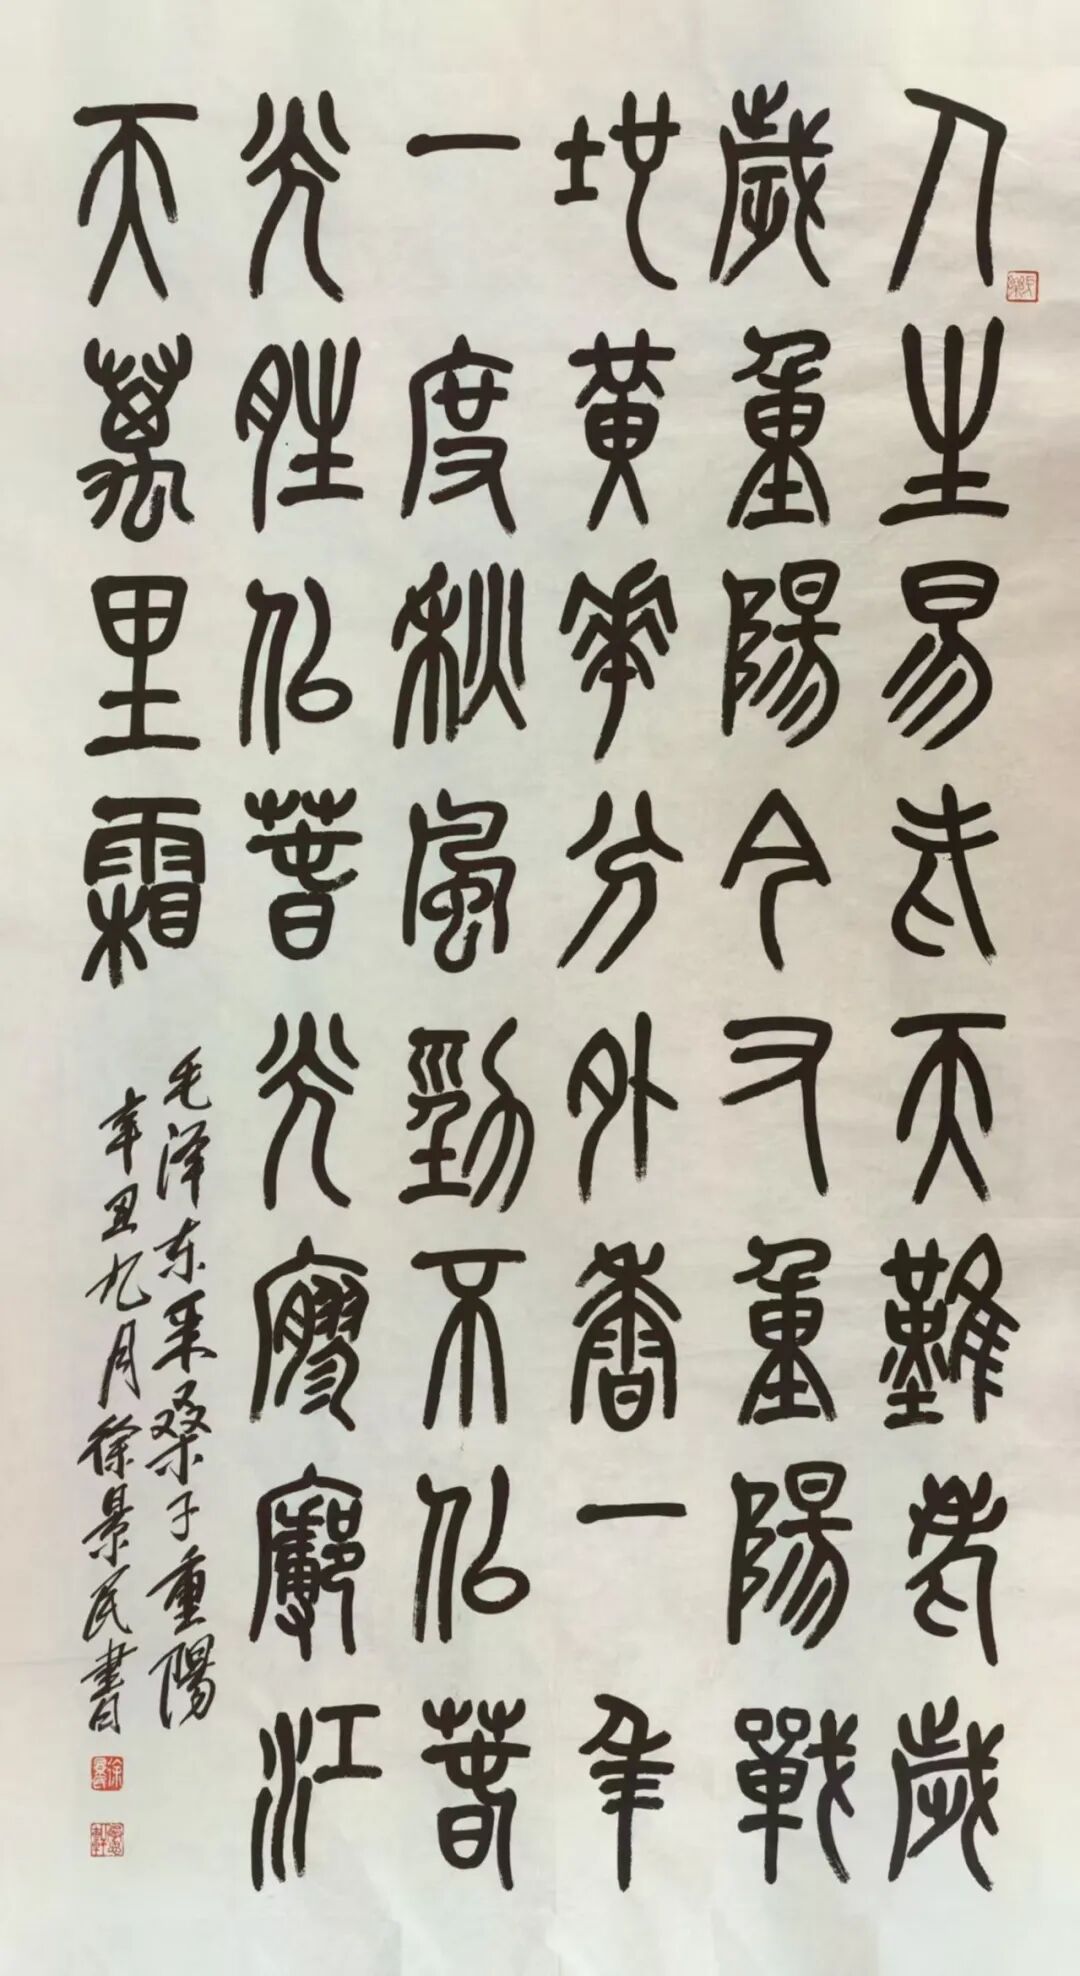 人生易老天難老歲
歲重陽今又重陽戰
地黃華分外香一年
一度秋風勁不似春
光勝似春光寥廓江
天萬里霜
毛泽东采桑子重陽
辛丑九月徐景民書